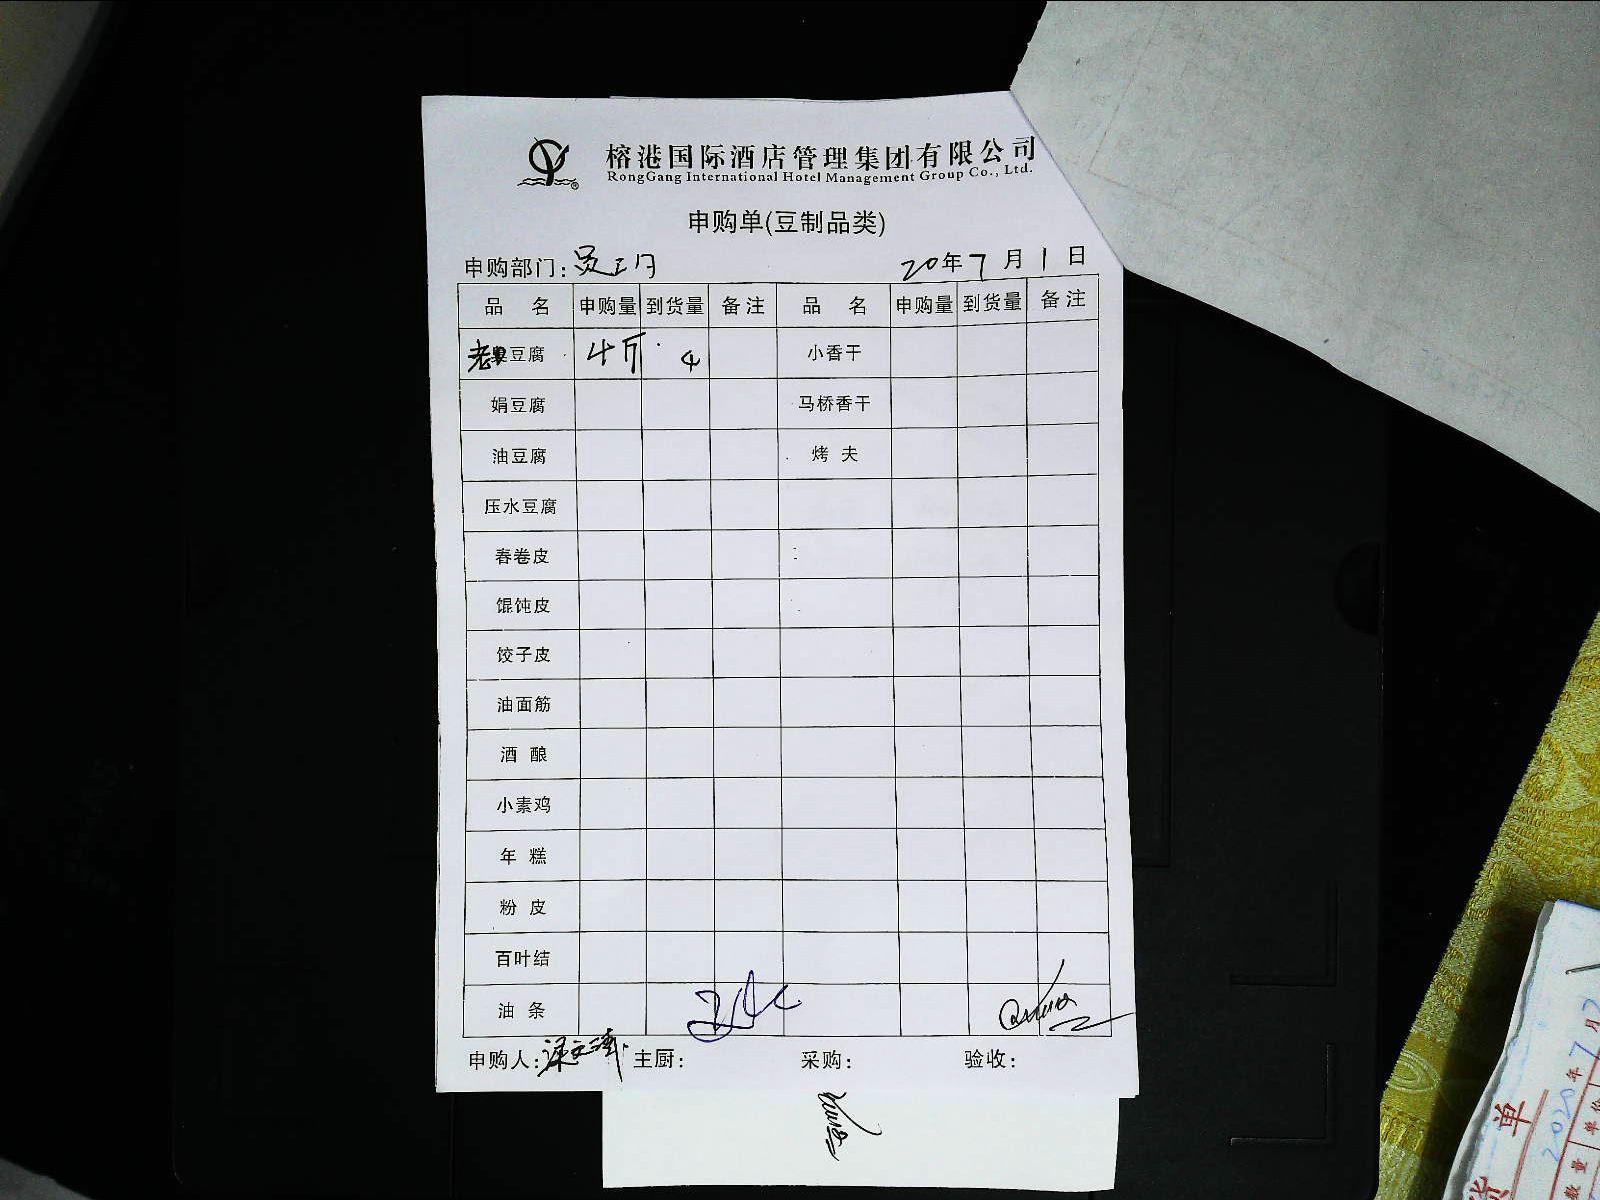 榕港国际酒店管理集团有限公司
RongGang International Hotel Management Group Co., Ltd.
申购单(豆制品类)
申购部门: 20年7月1日
品 名 申购量 到货量 备注 品 名 申购量 到货量 备注
老豆腐 4斤 4 小香干
娟豆腐 马桥香干
油豆腐 烤 夫
压水豆腐
春卷皮
馄饨皮
饺子皮
油面筋
酒 酿
小素鸡
年 糕
粉 皮
百叶结
油 条
申购人: 主厨: 采购: 验收:
单
2020年7月2
数量 单价